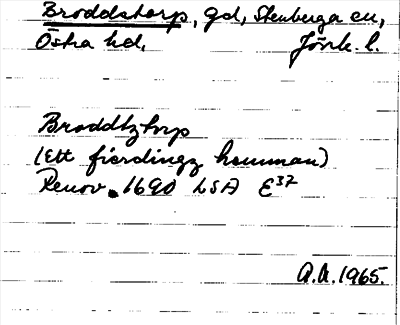 Broddstorp, gd, Stenberga sn,
Östra hd. Jönk. l.
Broddtztorp
(Ett fierdingz hemman)
Renov. 1690 LSA E37
A.A. 1965.